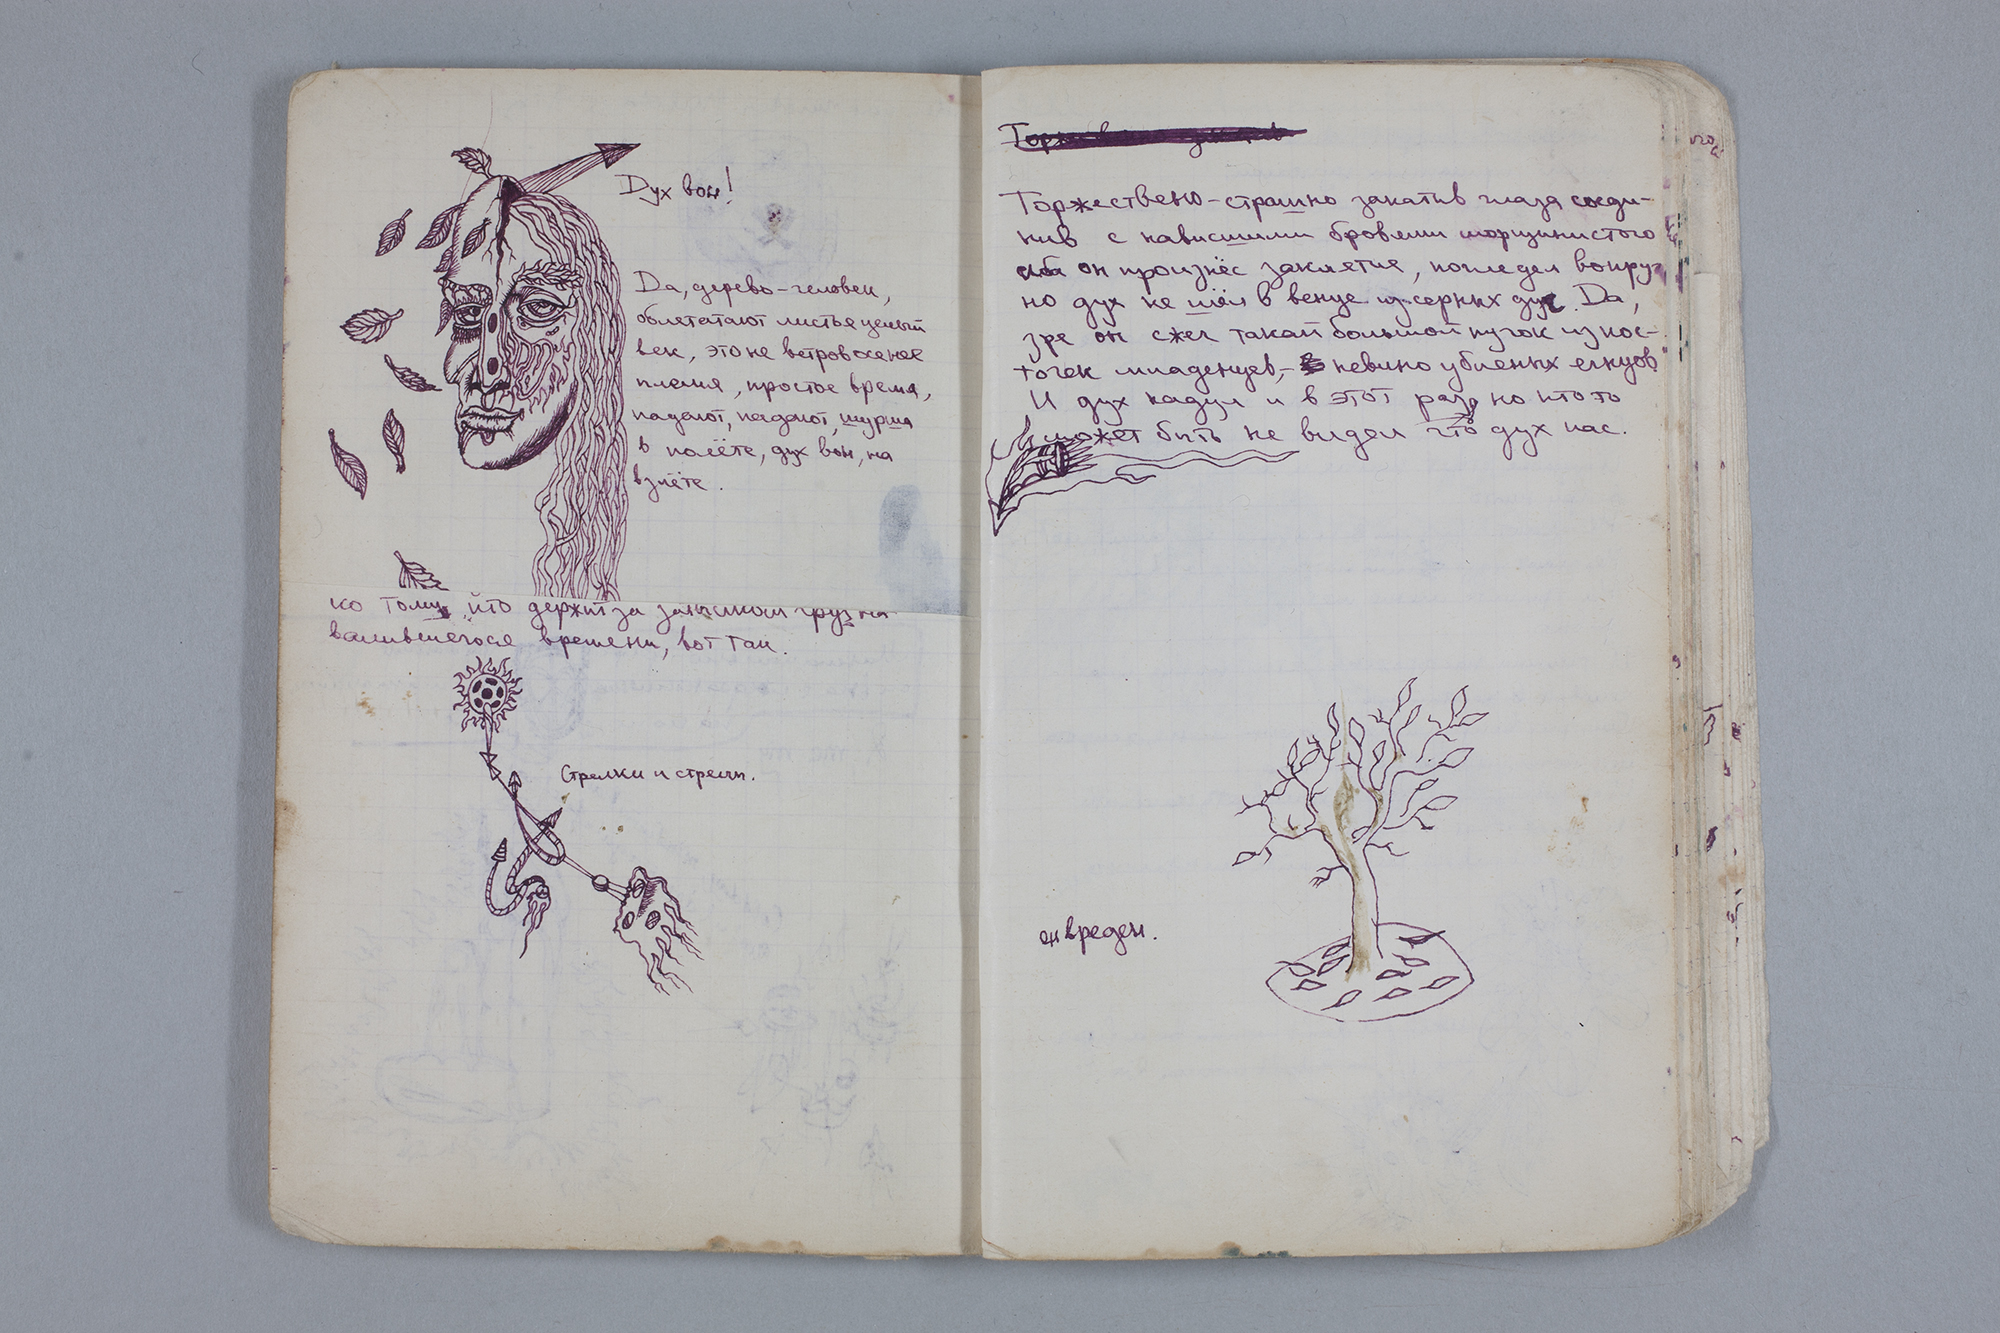 Дух вон!
Да, дерево-человек,
облетают листья целый
век, это не ветровое
племя, простое время,
падают, падают, шурша
в полёте, дух вон, на
взлёте.
ко тому, кто держит за груз на
валившегося времени, вот так.
Стрелки и стрелы.
Торжествено-страшно закатив глаза соеди-
нив с нависшими бровями морщинистого
лба он произнёс заклятие, поглядел вокруг
но дух не шёл в венце из серных дуг. Да,
зря он сжег такой большой пучок из кос-
точек младенцев, - невино убиеных агнцов
И дух надул и в этот раз, но кто то
может быть не видел что дух нас.
он вреден.